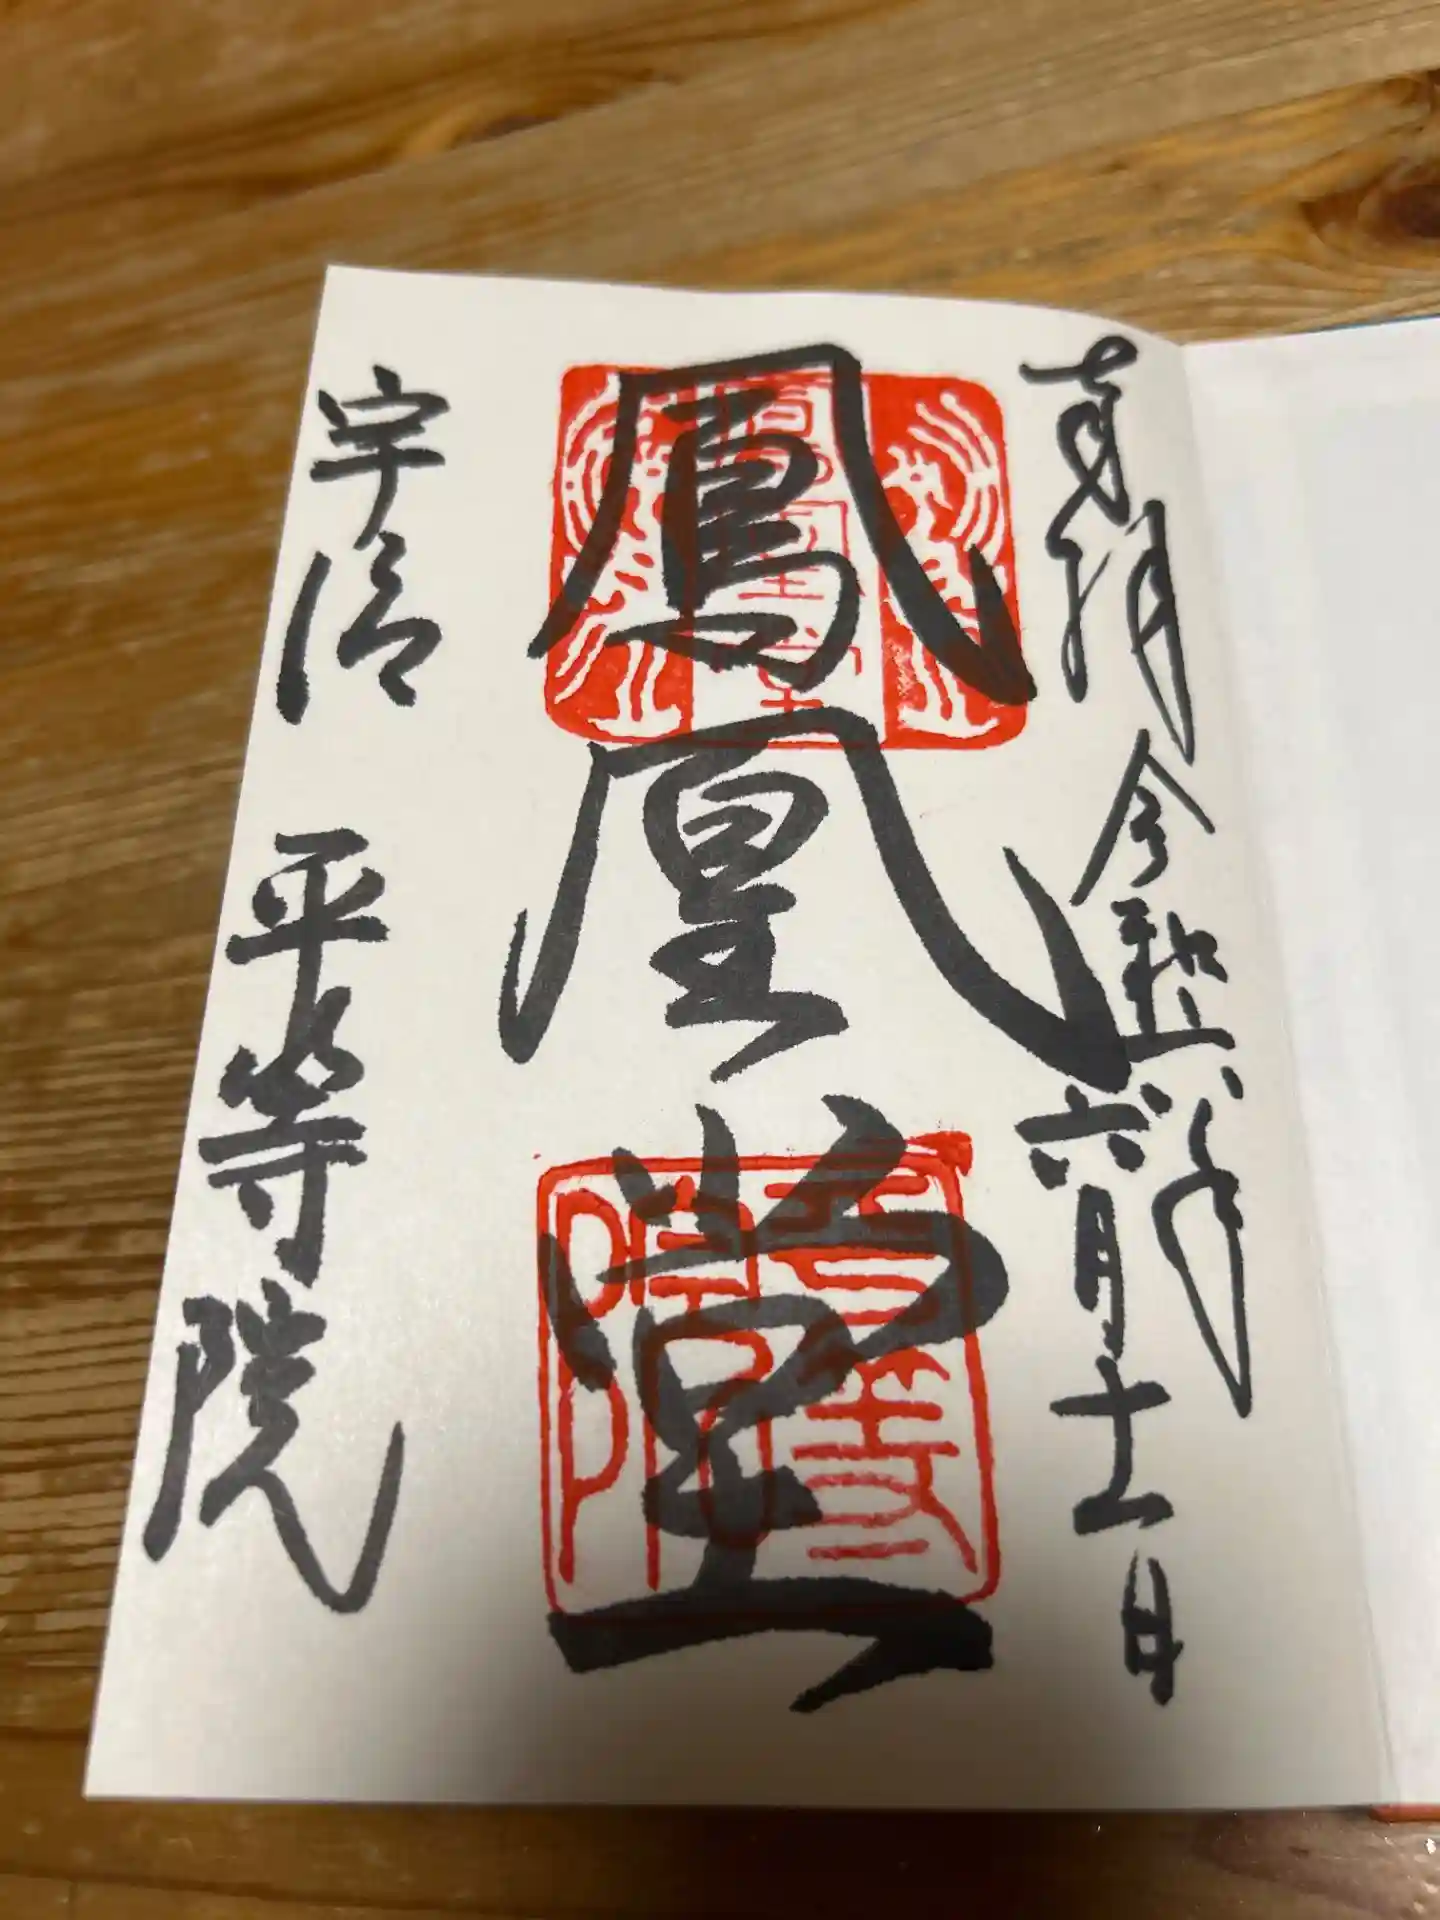 奉拝 令和六年
六月十一日
鳳凰堂
平等院
宇治 平等院